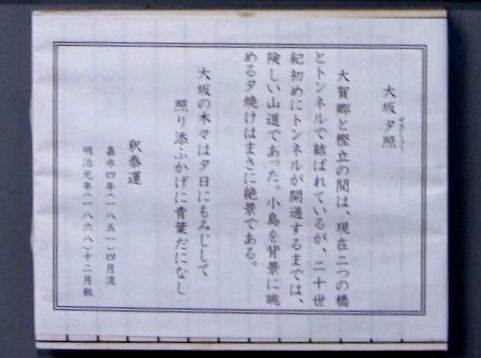 大坂夕照
大賀郷と樫立の間は、現在二つの橋
とトンネルで結ばれているが、二十世
紀初めにトンネルが開通するまでは、
険しい山道であった。小島を背景に眺
める夕焼けはまさに絶景である。
大坂の木々は夕日にもみじして
照り添ふかげに青葉だになし
釈泰運
嘉永四年(一八五一)四月流
明治元年(一八六八)十二月赦